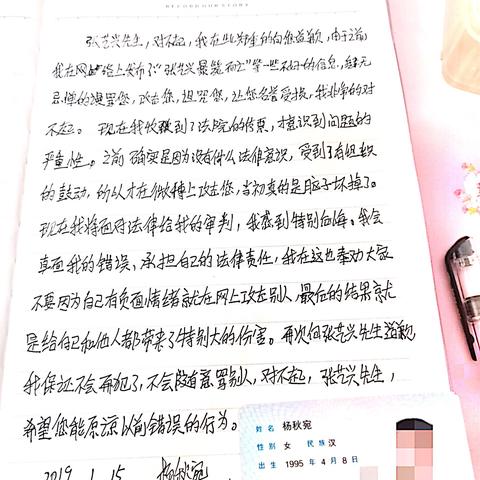 RECORD OUR STORY
张艺兴先生，对不起，我在此郑重的向您道歉，由于之前
我在网络上发布了"张艺兴暴毙而亡"等一些不好的信息，毫无
忌惮的谩骂您，攻击您，诅咒您，让您名誉受损，我非常的对
不起。现在我收到了法院的传票，才意识到问题的
严重性。之前确实是因为没有什么法律意识，受到了有组织
的鼓动，所以才在微博上攻击您，当初真的是脑子坏掉了。
现在我将面对法律给我的审判，我感到特别后悔。我会
直面我的错误、承担自己的法律责任，我在这也奉劝大家
不要因为自己有负面情绪就在网上攻击别人，最后的结果就
是给自己和他人都带来了特别大的伤害。再次向张艺兴先生道歉
我保证不会再犯了，不会随意辱骂别人，对不起，张艺兴先生，
希望您能原谅以前错误的行为。
2019.1.15 杨秋宛
姓名 杨秋宛
性别 女 民族 汉
出生 1995 年 4 月 8 日